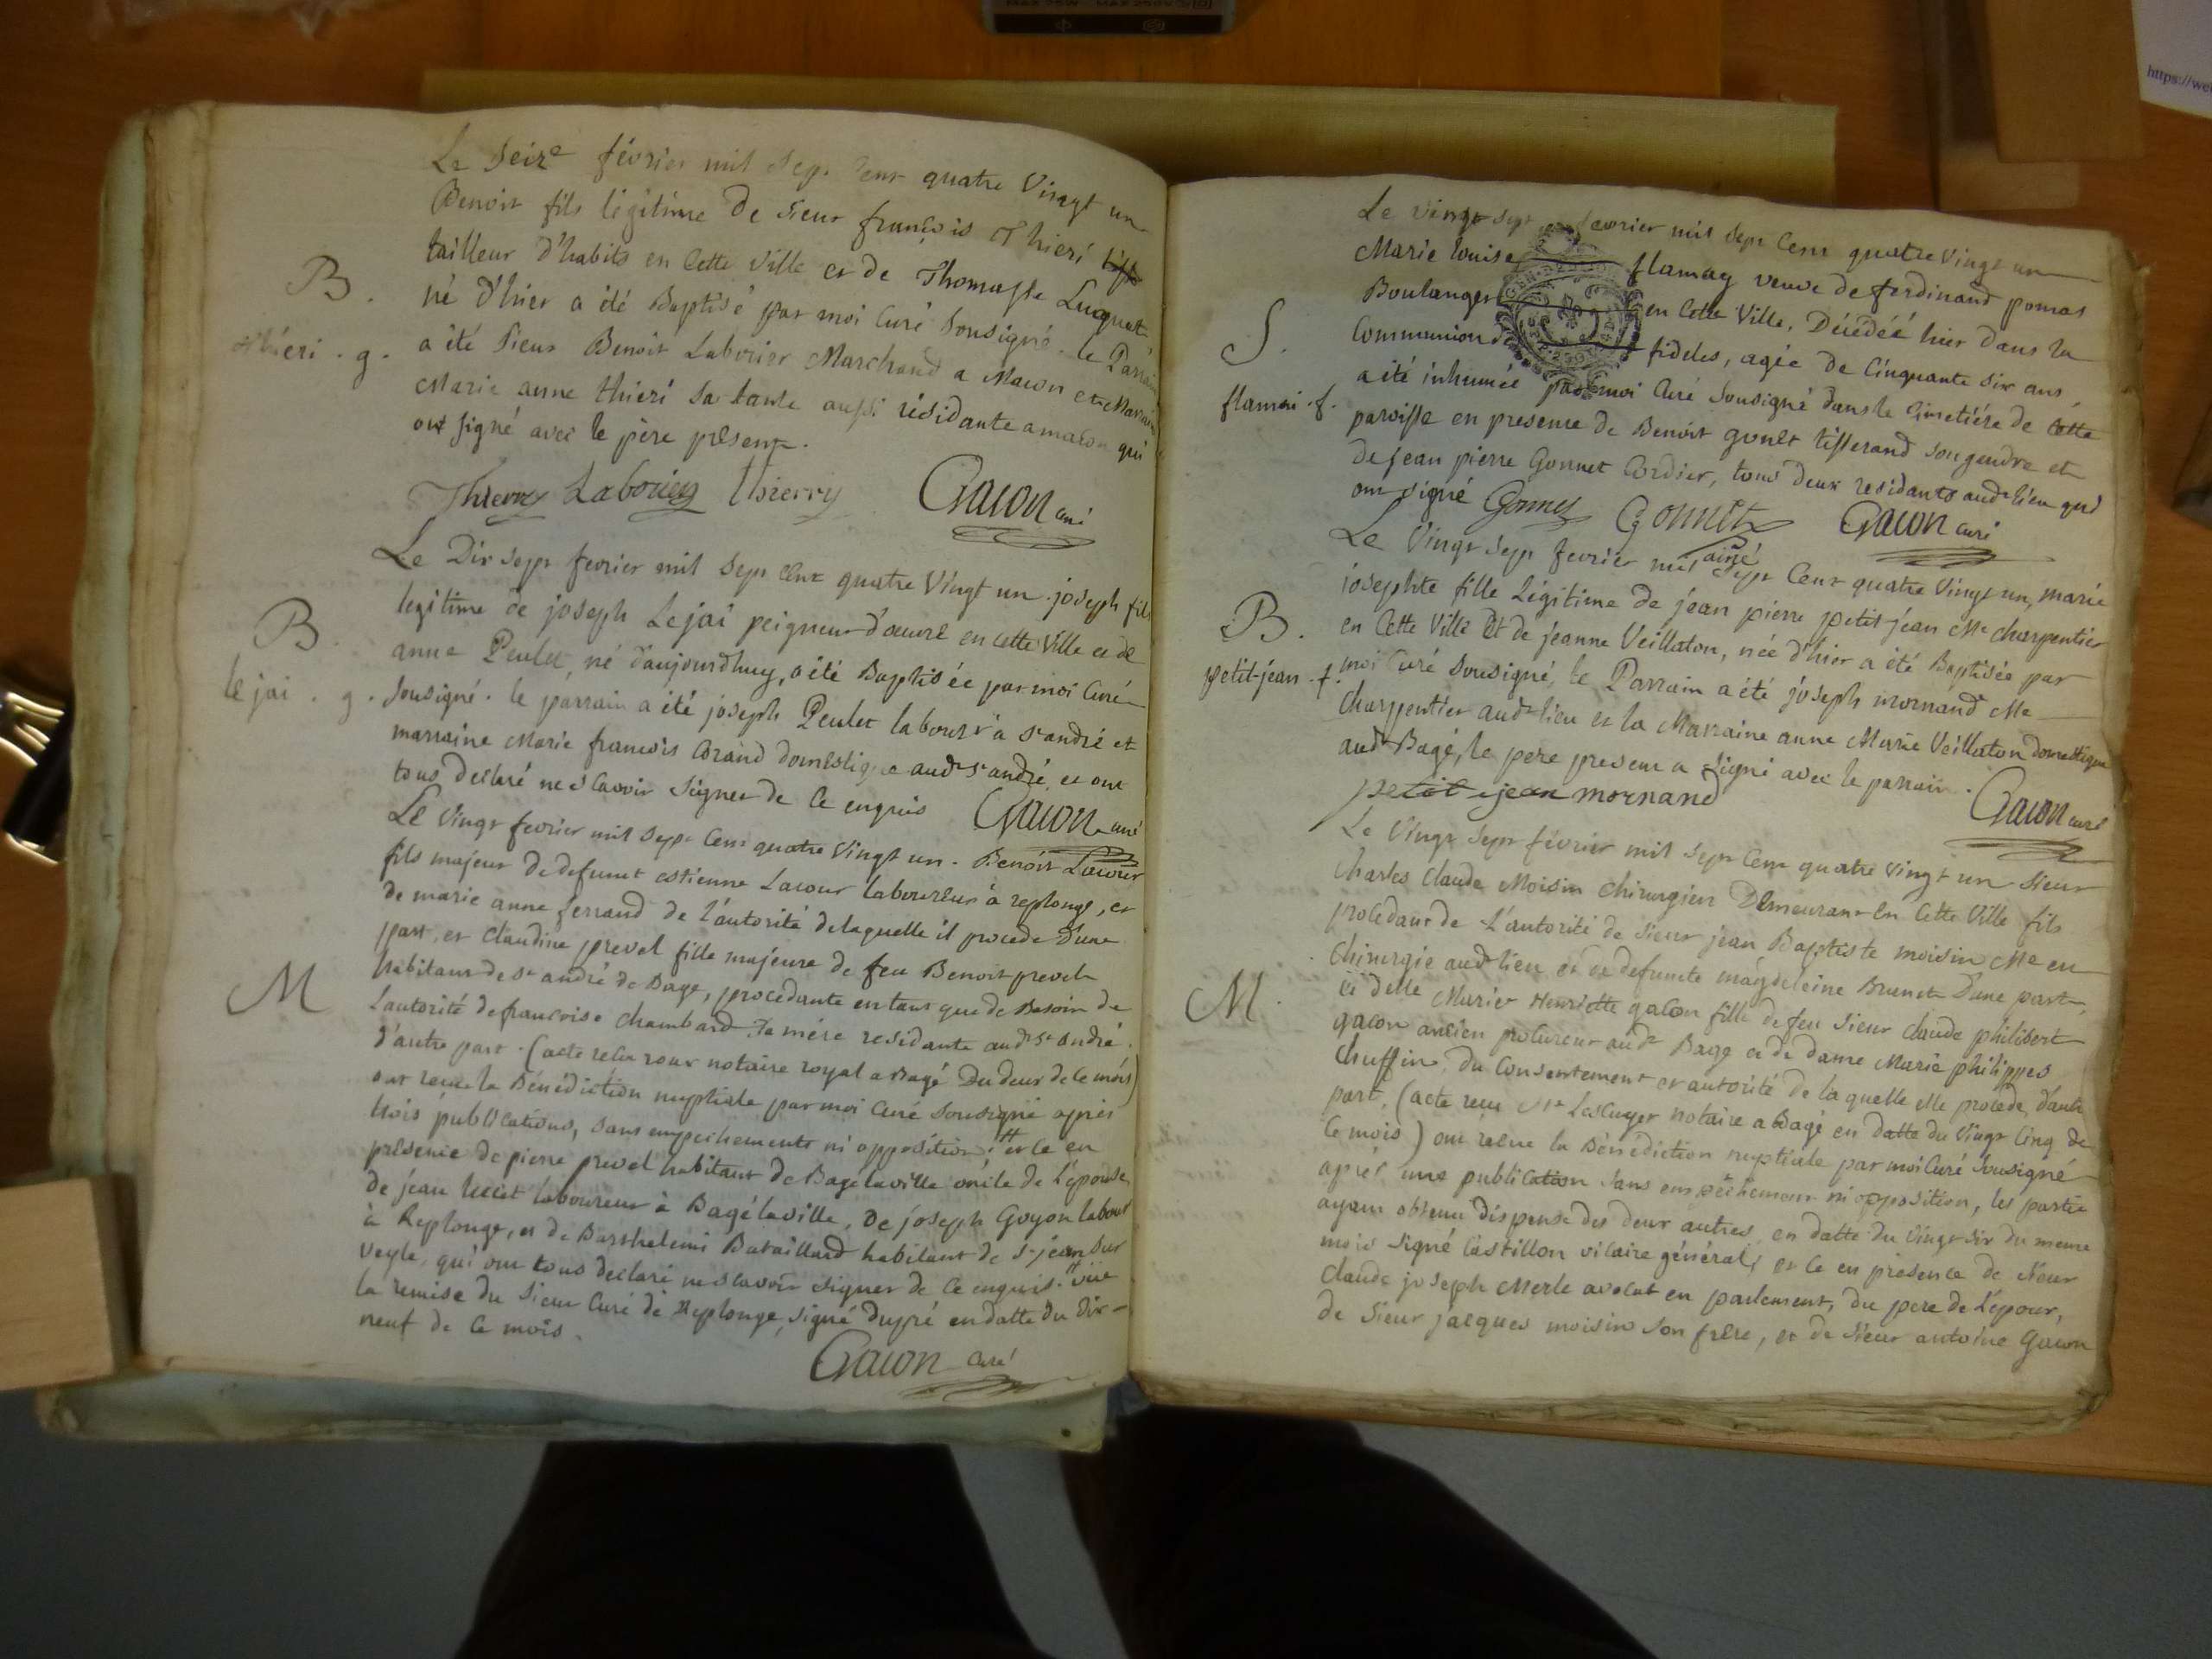 Le seize février mil sept cent quatre Vingt un
Benoit fils légitime de sieur françois Thieri
tailleur d'habits en cette Ville et de Thomasse Luquet,
B.
né d'hier a été Baptisé par moi Curé Sousigné. le Parrain
thieri . g.
a été sieur Benoit Laborier Marchand a Macon et Marraine
Marie anne thieri sa tante aussi résidante a macon qui
ont signé avec le père présent.
Thierry Laborier thierry Gacon curé
Le Dix sept fevrier mil sept cent quatre Vingt un . joseph fils
legitime de joseph Lejai peigneur d'oeuvre en cette Ville et de
B.
anne Peulet né d'aujourdhuy, a été Baptisée par moi Curé
le jai . g.
Sousigné . le parrain a été joseph Peulet labour.r à s.t andré et
marraine Marie francois Corand domestique aud.t s.t andré, et ont
tous déclaré ne scavoir signer de ce enquis Gacon curé
Le Vingt fevrier mil sept cent quatre Vingt un . Benoit Lacour
fils majeur de defunct estienne Lacour laboureur à replonge, et
de marie anne ferrand de l'autorité de laquelle il procede d'une
part, et claudine prevel fille majeure de feu Benoit prevel
M
habitant de s.t andré de Bage, procédante en tant que de Besoin de
l'autorité de francoise chambard sa mère residante aud.t s.t andré
d'autre part . (acte recu roux notaire royal a Bagé Du deux de ce mois)
ont recu la Bénédiction nuptiale par moi Curé Sousigné après
trois publications, sans empechements ni opposition, et ce en
présence de pierre prevel habitant de Bagé la ville oncle de L'épouse,
de jean laboureur à Bagé la ville, de joseph Goyon labour
à Replonge, et de Barthelemi Bataillard habitant de s.t jean sur
Veyle, qui ont tous declaré ne scavoir signer de ce enquis. Vue
la remise du sieur Curé de Replonge, signé dupré en datte du dix-
neuf de ce mois.
Gacon Curé
Le vingt sept fevrier mil sept cent quatre Vingt un
Marie Louise flamay veuve de ferdinand pomas
Boulanger en Cette Ville, Décédée hier dans la
S.
Communion de fideles, agée de Cinquante six ans,
flamai . f.
a été inhumée par moi Curé Sousigné dans le Cimetiére de cette
paroisse en presence de Benoit gonet tisserand son gendre et
de jean pierre Gonnet Cordier, tous deux residants aud.t lieu qui
ont signé Gonnet Gonnet ainé Gacon curé
Le Vingt sept fevrier mil sept Cent quatre Vingt un, marie
josephte fille Légitime de jean pierre petit-jean M.e charpentier
B.
en Cette Ville Et de jeanne Veillaton, née d'hier a été Baptisée par
petit-jean . f.
moi Curé Sousigné, le Parrain a été joseph mornand M.e
Charpentier aud.t lieu et la Marraine anne Marie Veillaton domestique
aud.t Bagé, le pere present a signé avec le parrain .
petit-jean mornand Gacon curé
Le Vingt sept février mil sept cent quatre Vingt un sieur
Charles Claude Moisin chirurgien Demeurant en cette Ville fils
procedant de L'autorité de sieur jean Baptiste moisin M.e en
Chirurgie aud.t lieu et de defuncte magdeleine Brunet D'une part,
M.
et d.elle Marie Henriette gacon fille de feu sieur claude philibert
gacon ancien procureur aud.t Bage et de dame Marie philippes
Chuffin, du Consentement et autorité de la quelle elle procede, d'autre
part, (acte recu M.e Lescuyer notaire a Bagé en datte du Vingt cinq de
Ce mois) ont recue la Bénédiction nuptiale par moi Curé Sousigné
apres une publication sans empêchement ni opposition, les parties
ayant obtenu dispense des deux autres, en datte du Vingt six du meme
mois signé Castillon vicaire général, et ce en présence de sieur
Claude joseph Merle avocat en parlement, du pere de l'époux,
de sieur jacques moisin son frère, et de sieur antoine Gacon